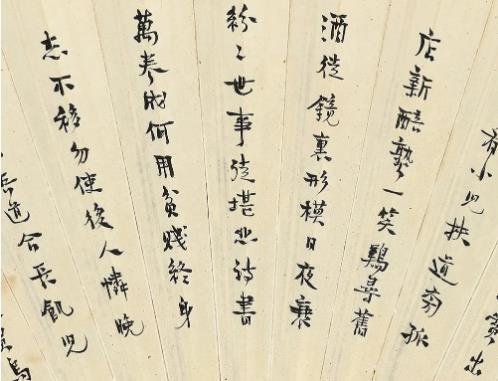 出
有小兒扶道旁孤
店新醅熟一笑尋舊
酒徒鏡裏形模日夜衰
紛〻世事徒堪悲詩書
萬卷成何用貧賤終身
志不移勿使後人憐晚
吾道合長飢兒
馬